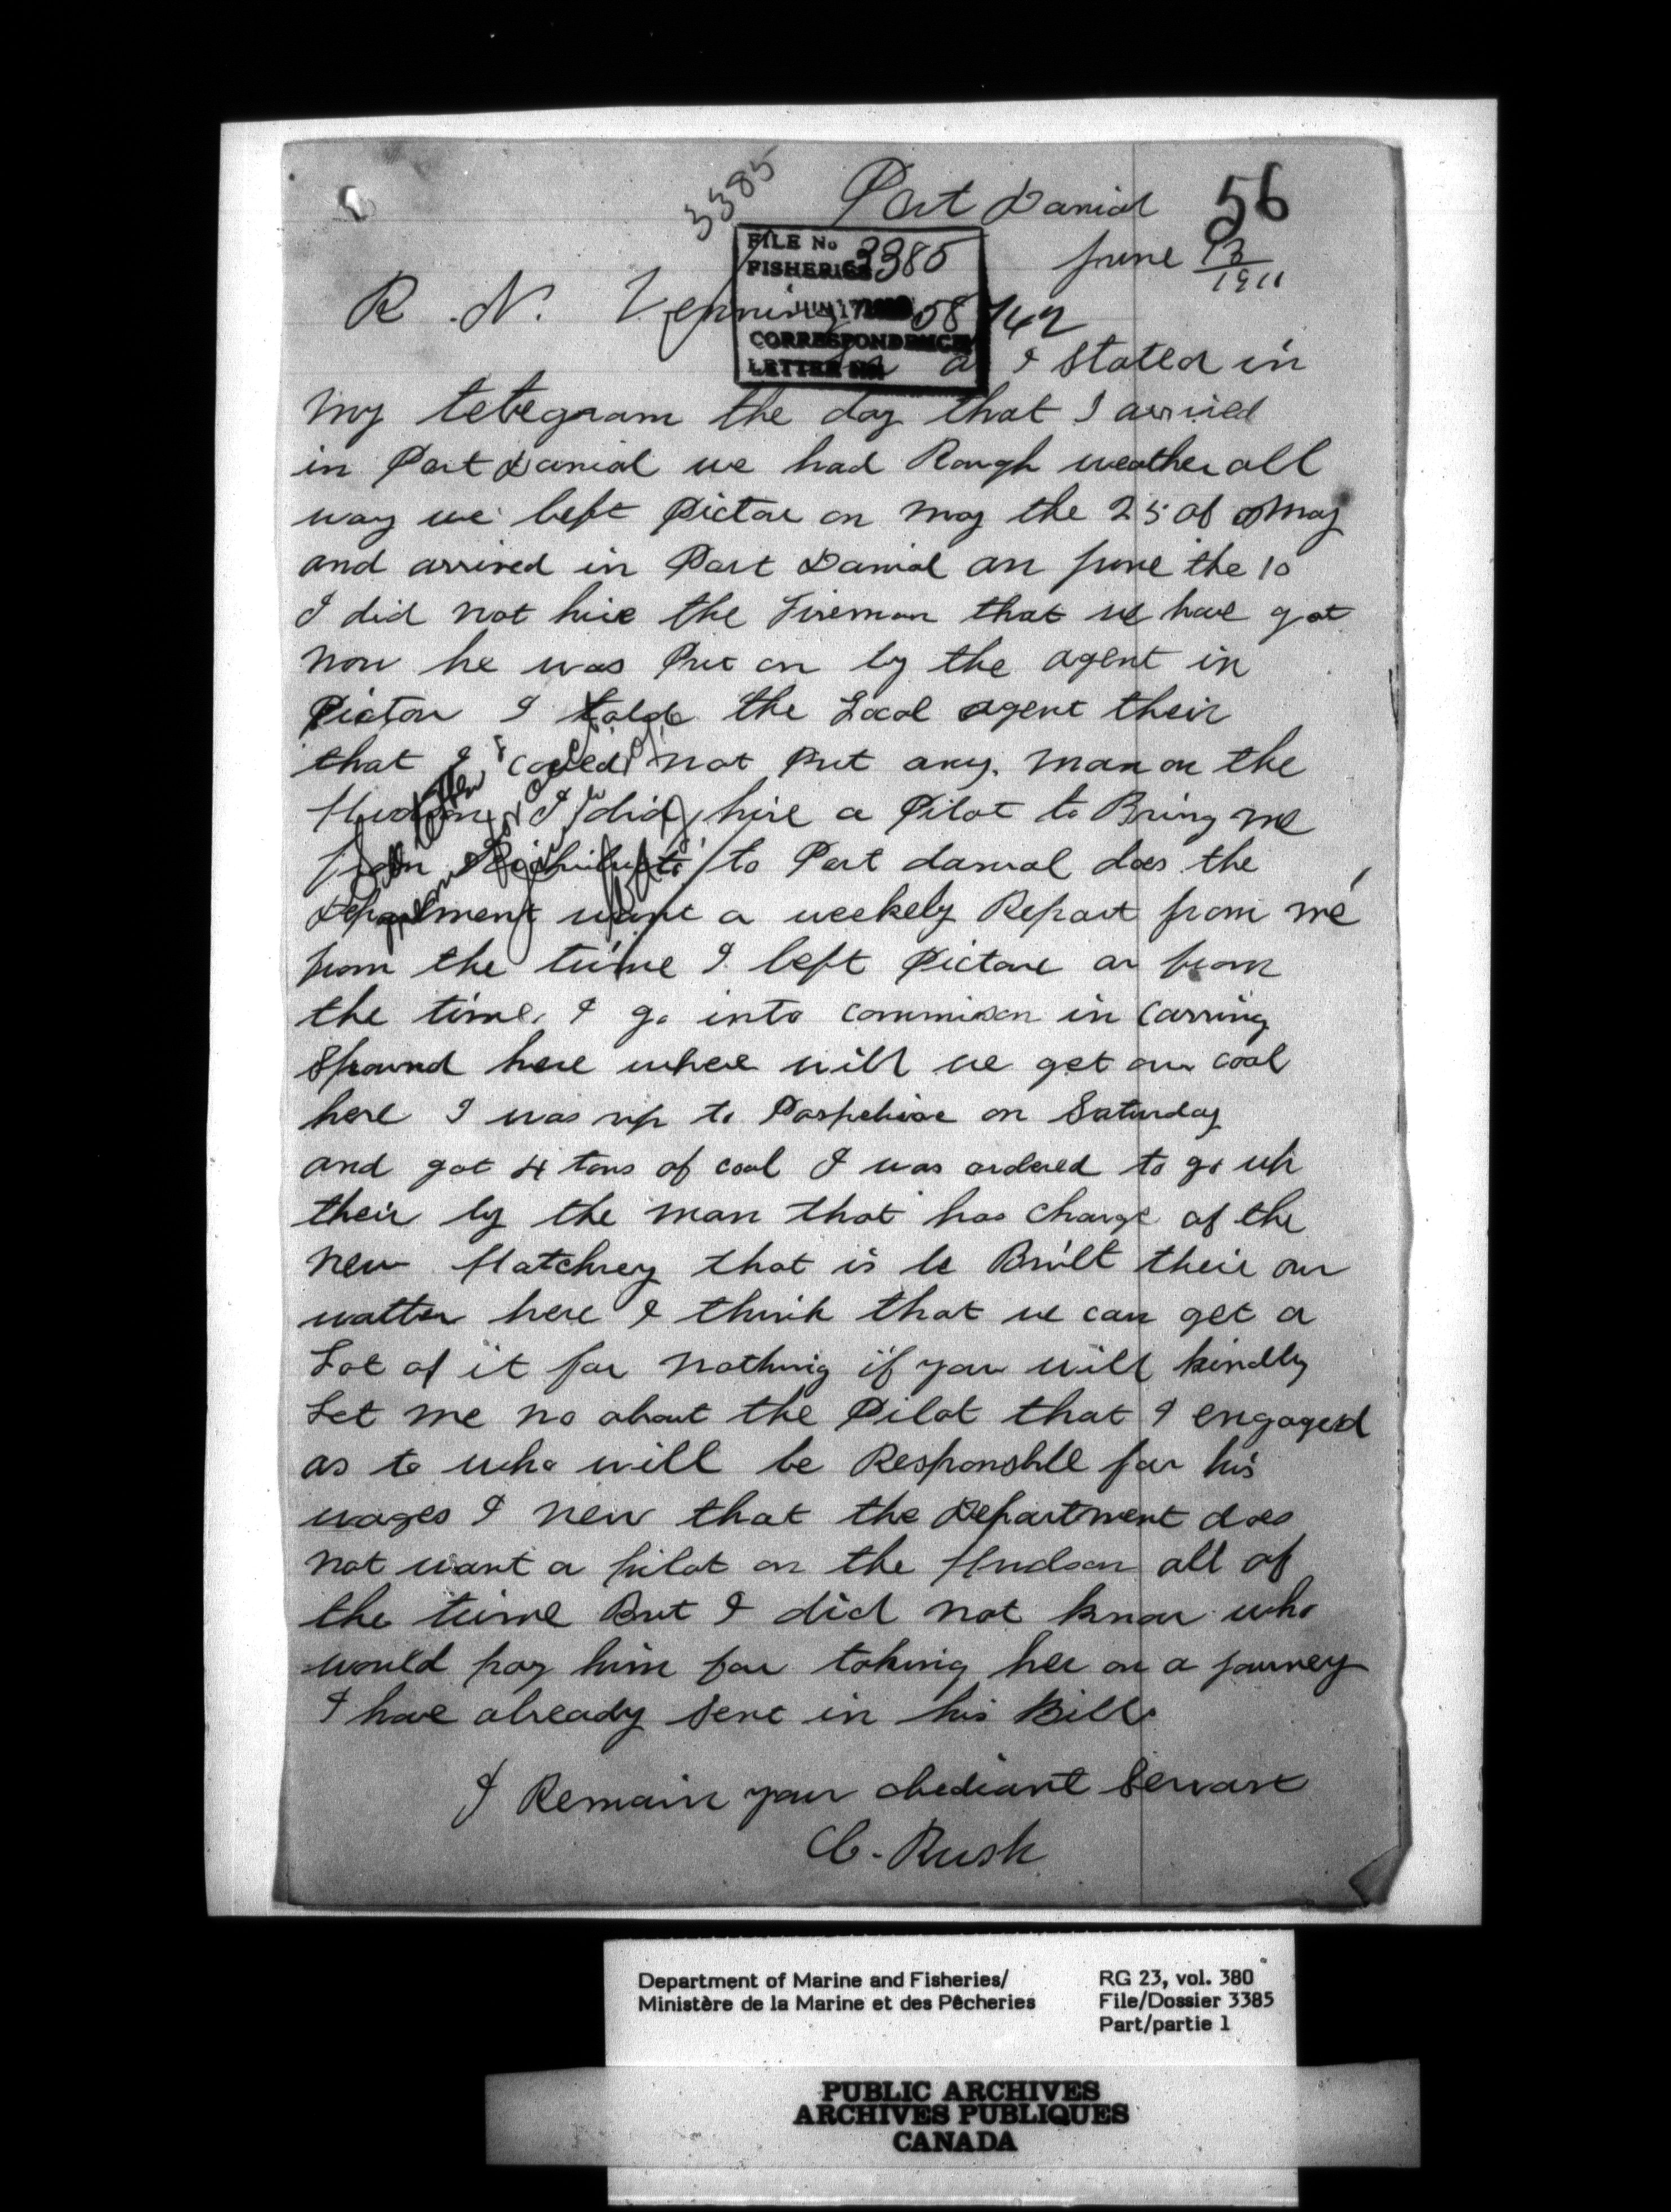 3385
Port Danial 56
June 13
1911
FILE No 3385
FISHERIES
R. N. Venning
JUN 17 58742
CORRESPONDENCE
LETTER No
as I stated in
my telegram the day that I arrived
in Port Danial we had Rough weather all
way we left Pictou on may the 25 of May
and arrived in Port Danial on June the 10
I did not hire the Fireman that we have got
now he was Put on by the agent in
Pictou I told the Local agent their
that I could not Put any man on the
Hudson I did hire a Pilot to Bring me
from Richibucto to Port danial does the
Department want a weekely Report from me
from the time I left Pictou or from
the time I go into commison in Carring
Spawnd here where will we get our coal
here I was up to Paspebiac on Saturday
and got 4 tons of coal I was ordered to go up
their by the man that has charge of the
new Hatchrey that is be Built their our
watter here I think that we can get a
Lot of it for nothing if you will kindly
Let me no about the Pilot that I engaged
as to who will be Responsble for his
wages I new that the Department does
not want a pilot on the Hudson all of
the time But I did not know who
would pay him for taking her on a journey
I have already sent in his Bill
I Remain your obediant Servant
C. Rush
Department of Marine and Fisheries/
Ministère de la Marine et des Pêcheries
RG 23, vol. 380
File/Dossier 3385
Part/partie 1
PUBLIC ARCHIVES
ARCHIVES PUBLIQUES
CANADA